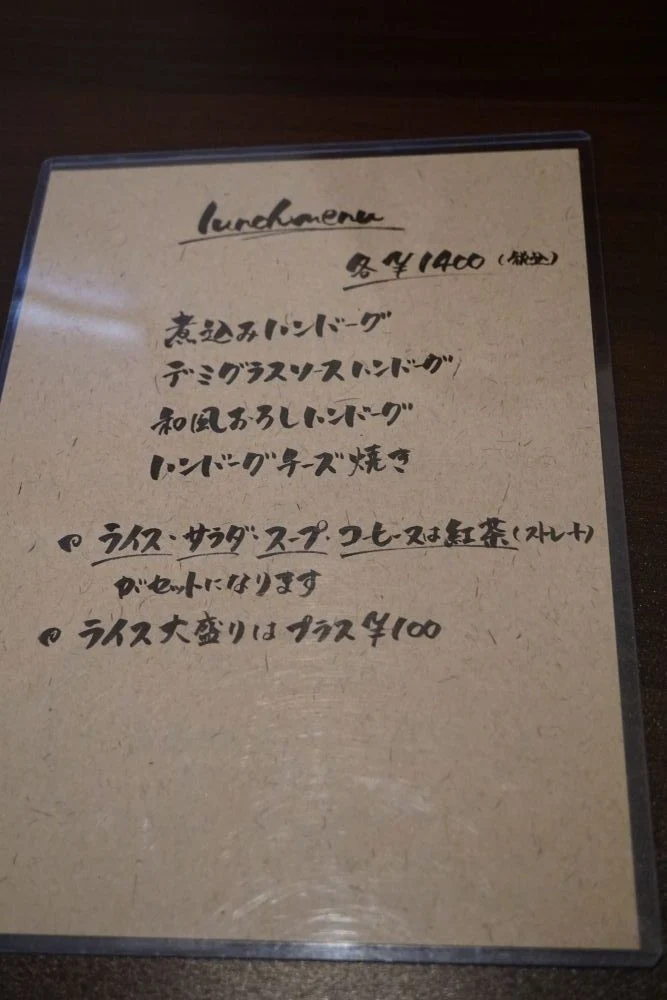 lunchmenu
各¥1400(税込)
煮込みハンバーグ
(デミグラスソースハンバーグ)
和風おろしハンバーグ
ハンバーグチーズ焼き
ライス・サラダ・スープ・コーヒー又は紅茶(ストレート)
がセットになります
ライス大盛りはプラス¥100